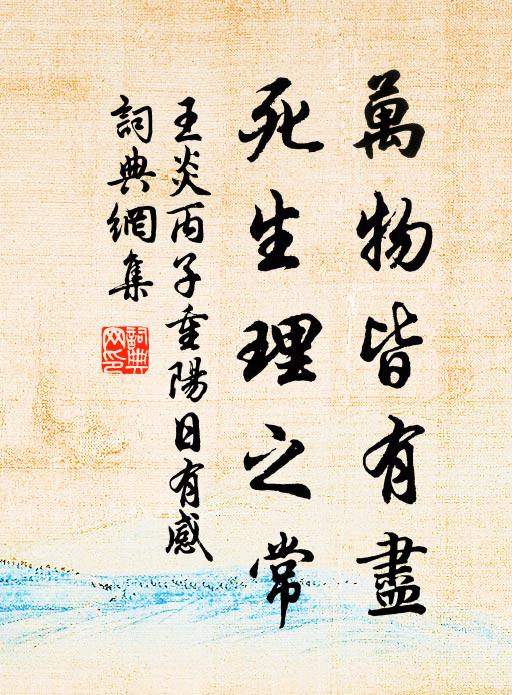 萬物皆有盡
死生理之常
王炎丙子重陽日有感
詞典網集
詞典網印